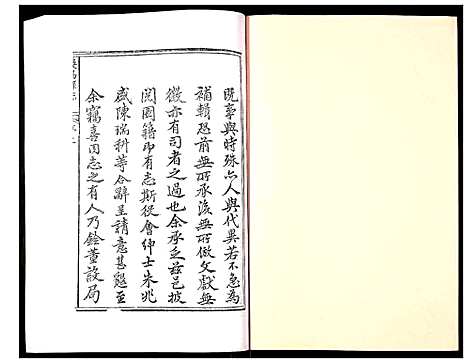 既事與時殊亦人與代異若不急為
補輯恐前無所承後無所倣文獻無
徵亦有司者之過也余承乏茲邑披
閱圖籍即有志斯役會紳士朱兆
盛陳瑞科等合辭呈請意甚懇至
余竊喜同志之有人乃銓董設局